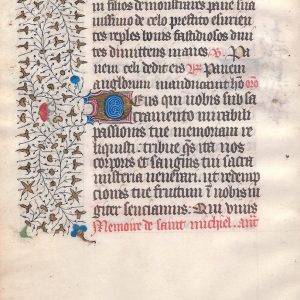 in filios demonstrare pane sua
uissimo de celo prestito esurien
tes reples bonis fastidiosos diui
tes dimittens inanes. V. Pa
nem celi dedit eis R. Panem
angelorum manducauit ho oro
Deus qui nobis sub sa
cramento mirabili
passionis tue memoriam re
liquisti: tribue qs ita nos
corporis et sanguinis tui sacra
misteria venerari. ut redemp
cionis tue fructum in nobis iu
giter senciamus: Qui viuis
Memoire de saint michiel. ant